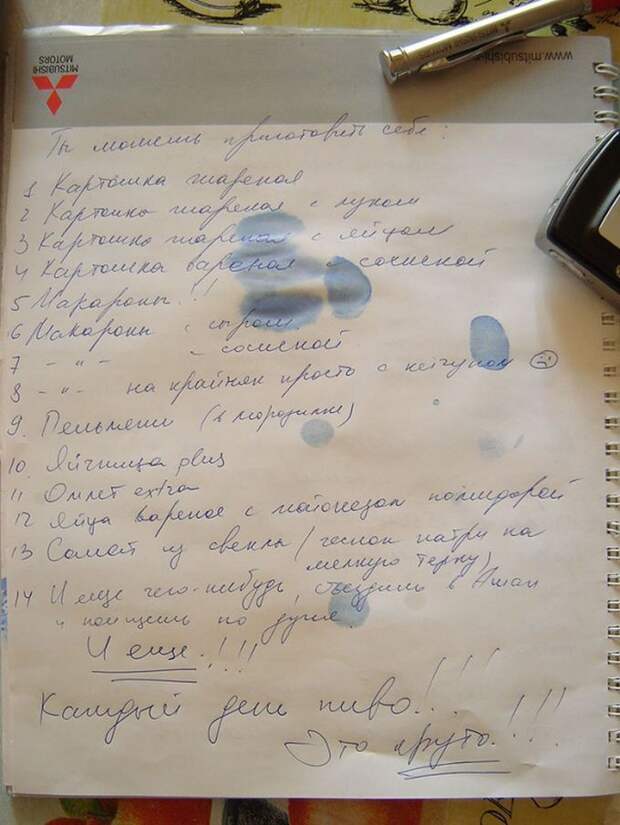 MITSUBISHI
MOTORS
www.mitsubishi
Ты можешь приготовить себе:
1 Картошка жареная
2 Картошка жареная с луком
3 Картошка жареная с яйцом
4 Картошка вареная с сосиской
5 Макароны!!
6 Макароны с сыром
7 - " - с сосиской
8 - " - на крайняк просто с кетчупом ☹
9. Пельмени (в морозилке)
10. Яичница plus
11 Омлет extra
12 Яйца вареные с майонезом помидорой
13 Салат из свеклы (чеснок натри на
мелкую терку)
14 И еще чего-нибудь, съездишь в Ашан
и поищешь по душе.
И еще!!!
Каждый день пиво!!!
Это круто!!!